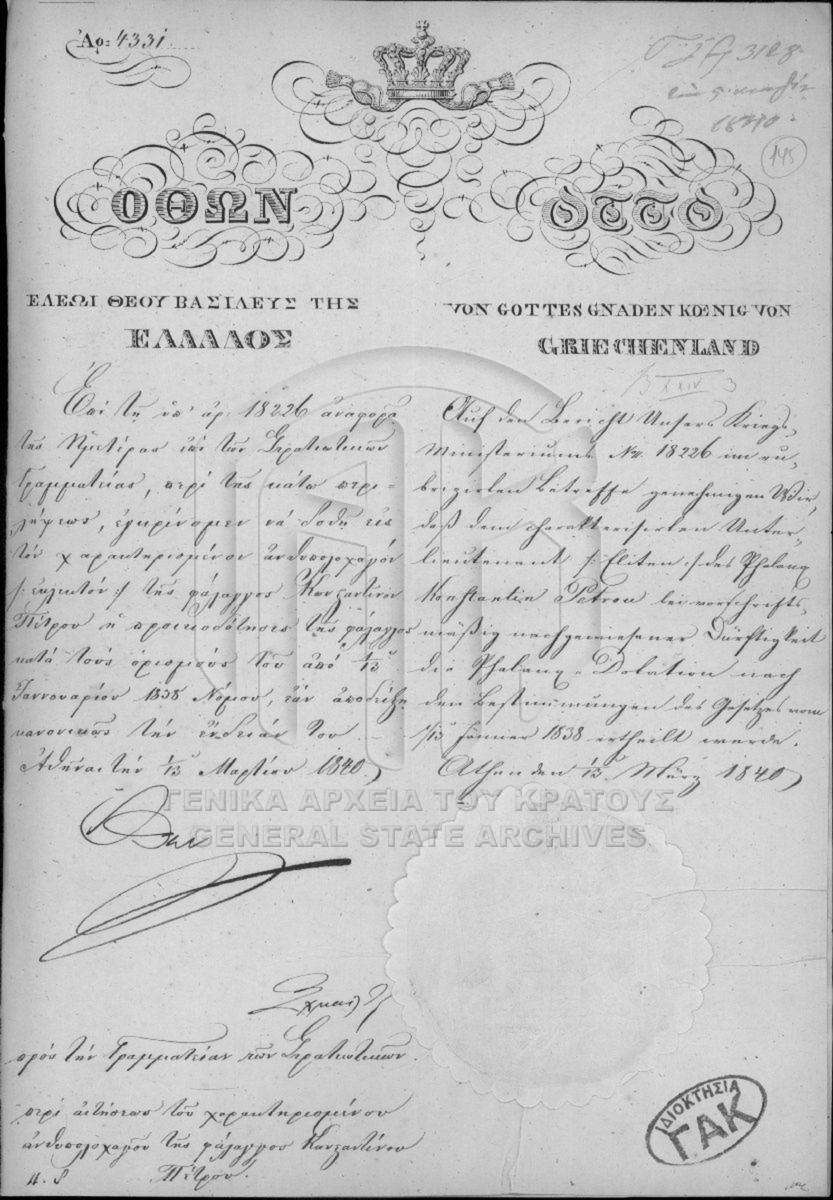 Ἀρ: 4331
145
ΟΘΩΝ
ΕΛΕΩΙ ΘΕΟΥ ΒΑΣΙΛΕΥΣ ΤΗΣ
ΕΛΛΑΔΟΣ
Ἐπὶ τῇ ὑπ' ἀρ. 18226 ἀναφορᾷ
τῆς Ἡμετέρας ἐπὶ τῶν Στρατιωτικῶν
Γραμματείας, περὶ τῆς κάτω περι-
λήψεως, ἐγκρίνομεν νὰ δοθῇ εἰς
τὸν χαρακτηρισμένον ἀνθυπολοχαγὸν
/: ἐκλεκτόν :/ τῆς φάλαγγος Κωνςαντῖνον
Πέτρου ἡ προικοδότησις τῆς φάλαγγος
κατὰ τοὺς ὁρισμοὺς τοῦ ἀπὸ 1/13
Ἰαννουαρίου 1838 Νόμου, ἐὰν ἀποδείξῃ
κανονικῶς τὴν ἔνδειάν του
Ἀθῆναι τὴν 1/13 Μαρτίου 1840
OTTO
VON GOTTES GNADEN KŒNIG VON
GRIECHENLAND
Auf den Bericht Unsers Kriegs-
Ministeriums No. 18226 im ru-
brizirten Betreffe genehmigen Wir
daß dem charakterisirten Unter-
lieutenant /: Eliten :/ des Phalanx
Konstantin Petrou bei vorschrifts-
mäßig nachgewiesener Dürftigkeit
die Phalanx-Dotation nach
den Bestimmungen des Gesetzes vom
1/13 Jänner 1838 ertheilt werde.
Athen den 1/13 März 1840
ΓΕΝΙΚΑ ΑΡΧΕΙΑ ΤΟΥ ΚΡΑΤΟΥΣ
GENERAL STATE ARCHIVES
Ὄθων
πρὸς τὴν Γραμματείαν τῶν Στρατιωτικῶν
περὶ αἰτήσεως τοῦ χαρακτηρισμένου
ἀνθυπολοχαγοῦ τῆς φάλαγγος Κωνςαντίνου
Πέτρου
ΙΔΙΟΚΤΗΣΙΑ
ΓΑΚ